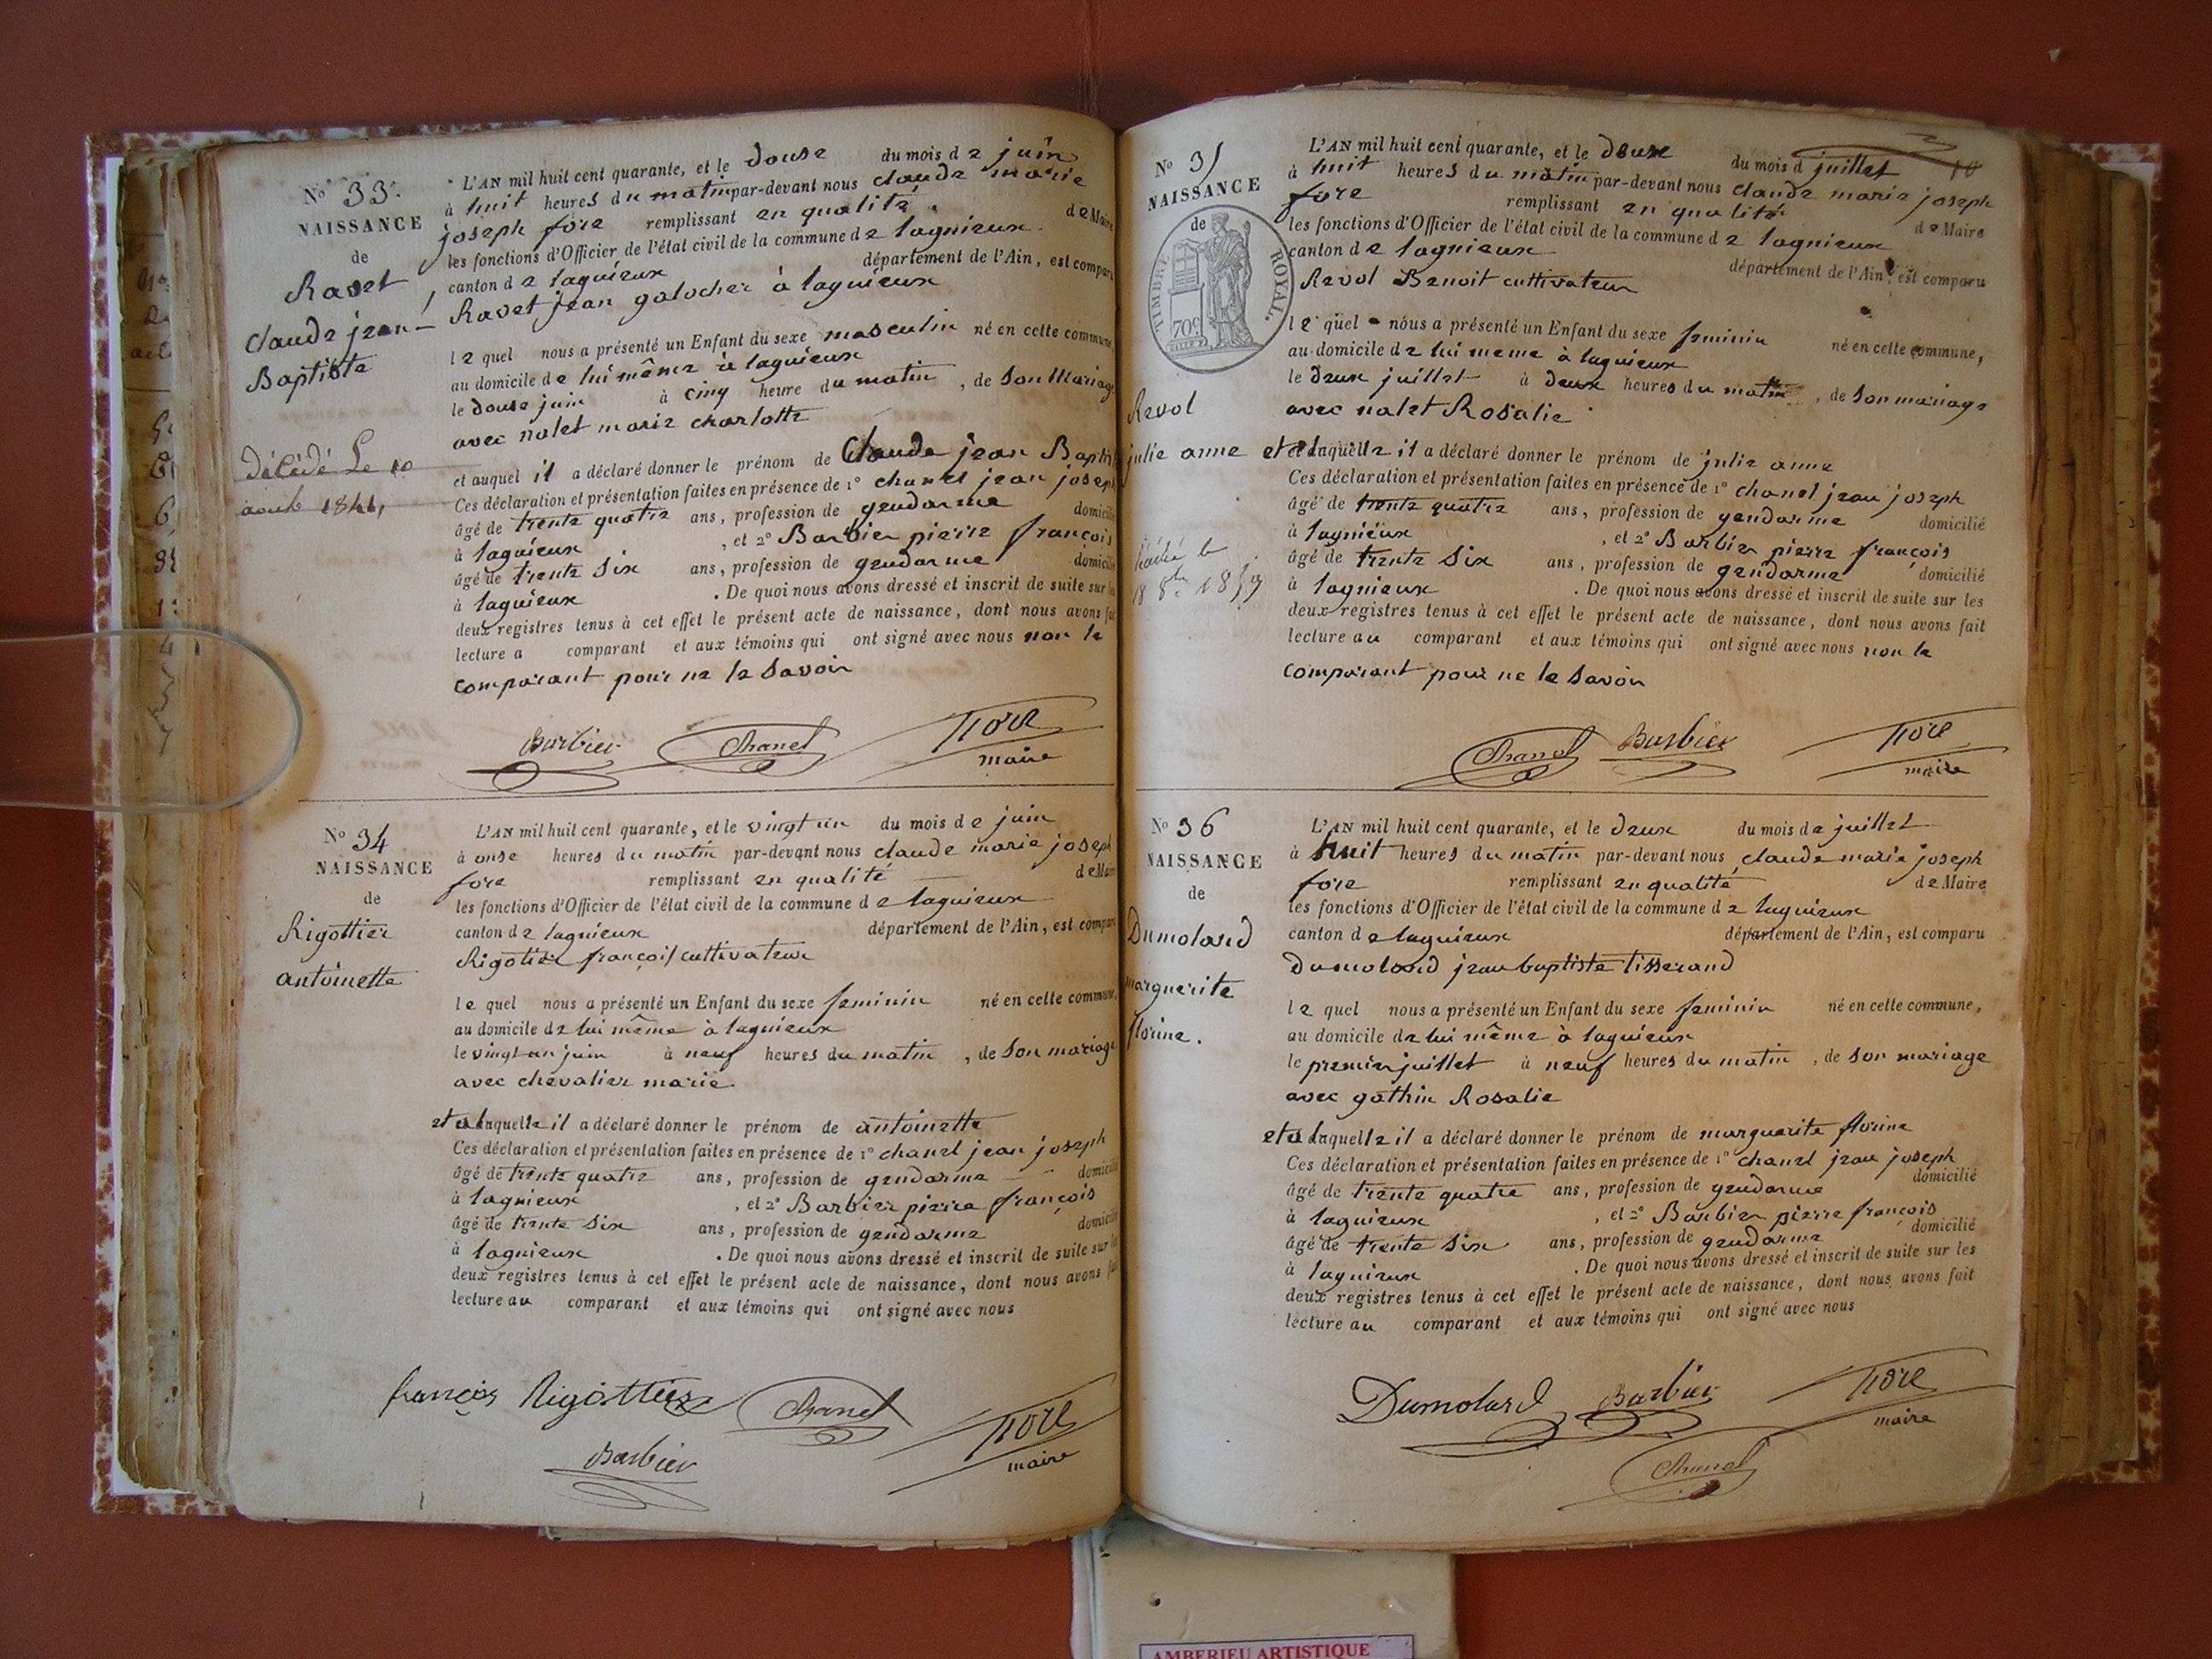 N° 33.
NAISSANCE
de
Ravet
claude jean
Baptiste
décédé Le 10
août 1841,
L'AN mil huit cent quarante, et le douse du mois de juin
à huit heures du matin par-devant nous claude marie
joseph fore remplissant en qualité de Maire
les fonctions d'Officier de l'état civil de la commune de lagnieux
canton de lagnieux département de l'Ain, est comparu
Ravet jean galocher à lagnieux
le quel nous a présenté un Enfant du sexe masculin né en cette commune,
au domicile de lui même à lagnieux
le douse juin à cinq heure du matin, de son Mariage
avec nalet marie charlotte
et auquel il a déclaré donner le prénom de Claude jean Baptis
Ces déclaration et présentation faites en présence de 1° chanel jean joseph
âgé de trente quatre ans, profession de gendarme domicilié
à lagnieux, et 2° Barbier pierre françois
âgé de trente six ans, profession de gendarme domicilié
à lagnieux. De quoi nous avons dressé et inscrit de suite sur les
deux registres tenus à cet effet le présent acte de naissance, dont nous avons fait
lecture a comparant et aux témoins qui ont signé avec nous non le
comparant pour ne le savoir
Barbier Chanel Fore
maire
N° 34
NAISSANCE
de
Rigottier
antoinette
L'AN mil huit cent quarante, et le vingt un du mois de juin
à onse heures du matin par-devant nous claude marie joseph
fore remplissant en qualité de Maire
les fonctions d'Officier de l'état civil de la commune de lagnieux
canton de lagnieux département de l'Ain, est comparu
Rigotier françois cultivateur
le quel nous a présenté un Enfant du sexe feminin né en cette commune,
au domicile de lui même à lagnieux
le vingt un juin à neuf heures du matin, de son mariage
avec chevalier marie
et a laquelle il a déclaré donner le prénom de antoinette
Ces déclaration et présentation faites en présence de 1° chanel jean joseph
âgé de trente quatre ans, profession de gendarme domicilié
à lagnieux, et 2° Barbier pierre françois
âgé de trente six ans, profession de gendarme domicilié
à lagnieux. De quoi nous avons dressé et inscrit de suite sur les
deux registres tenus à cet effet le présent acte de naissance, dont nous avons fait
lecture au comparant et aux témoins qui ont signé avec nous
françois Rigottier Chanel Fore
Barbier maire
N° 35
NAISSANCE
de
TIMBRE ROYAL.
70c
Revol
julie anne
18 8bre 1859
L'AN mil huit cent quarante, et le deux du mois d juillet
à huit heures du matin par-devant nous claude marie joseph
fore remplissant en qualité de Maire
les fonctions d'Officier de l'état civil de la commune de lagnieux
canton de lagnieux département de l'Ain, est comparu
Revol Benoit cultivateur
le quel nous a présenté un Enfant du sexe feminin né en cette commune,
au domicile de lui meme à lagnieux
le deux juillet à deux heures du matin, de son mariage
avec nalet Rosalie
et a laquelle il a déclaré donner le prénom de julie anne
Ces déclaration et présentation faites en présence de 1° chanel jean joseph
âgé de trente quatre ans, profession de gendarme domicilié
à lagnieux, et 2° Barbier pierre françois
âgé de trente six ans, profession de gendarme domicilié
à lagnieux. De quoi nous avons dressé et inscrit de suite sur les
deux registres tenus à cet effet le présent acte de naissance, dont nous avons fait
lecture au comparant et aux témoins qui ont signé avec nous non le
comparant pour ne le savoir
Chanel Barbier Fore
maire
N° 36
NAISSANCE
de
Dumolard
marguerite
florine.
L'AN mil huit cent quarante, et le deux du mois de juillet
à huit heures du matin par-devant nous claude marie joseph
fore remplissant en qualité de Maire
les fonctions d'Officier de l'état civil de la commune de lagnieux
canton de lagnieux département de l'Ain, est comparu
Dumolard jean baptiste tisserand
le quel nous a présenté un Enfant du sexe feminin né en cette commune,
au domicile de lui même à lagnieux
le premier juillet à neuf heures du matin, de son mariage
avec gathin Rosalie
et a laquelle il a déclaré donner le prénom de marguerite florine
Ces déclaration et présentation faites en présence de 1° chanel jean joseph
âgé de trente quatre ans, profession de gendarme domicilié
à lagnieux, et 2° Barbier pierre françois
âgé de trente six ans, profession de gendarme domicilié
à lagnieux. De quoi nous avons dressé et inscrit de suite sur les
deux registres tenus à cet effet le présent acte de naissance, dont nous avons fait
lecture au comparant et aux témoins qui ont signé avec nous
Dumolard Barbier Fore
maire
Chanel
AMBERIEU ARTISTIQUE